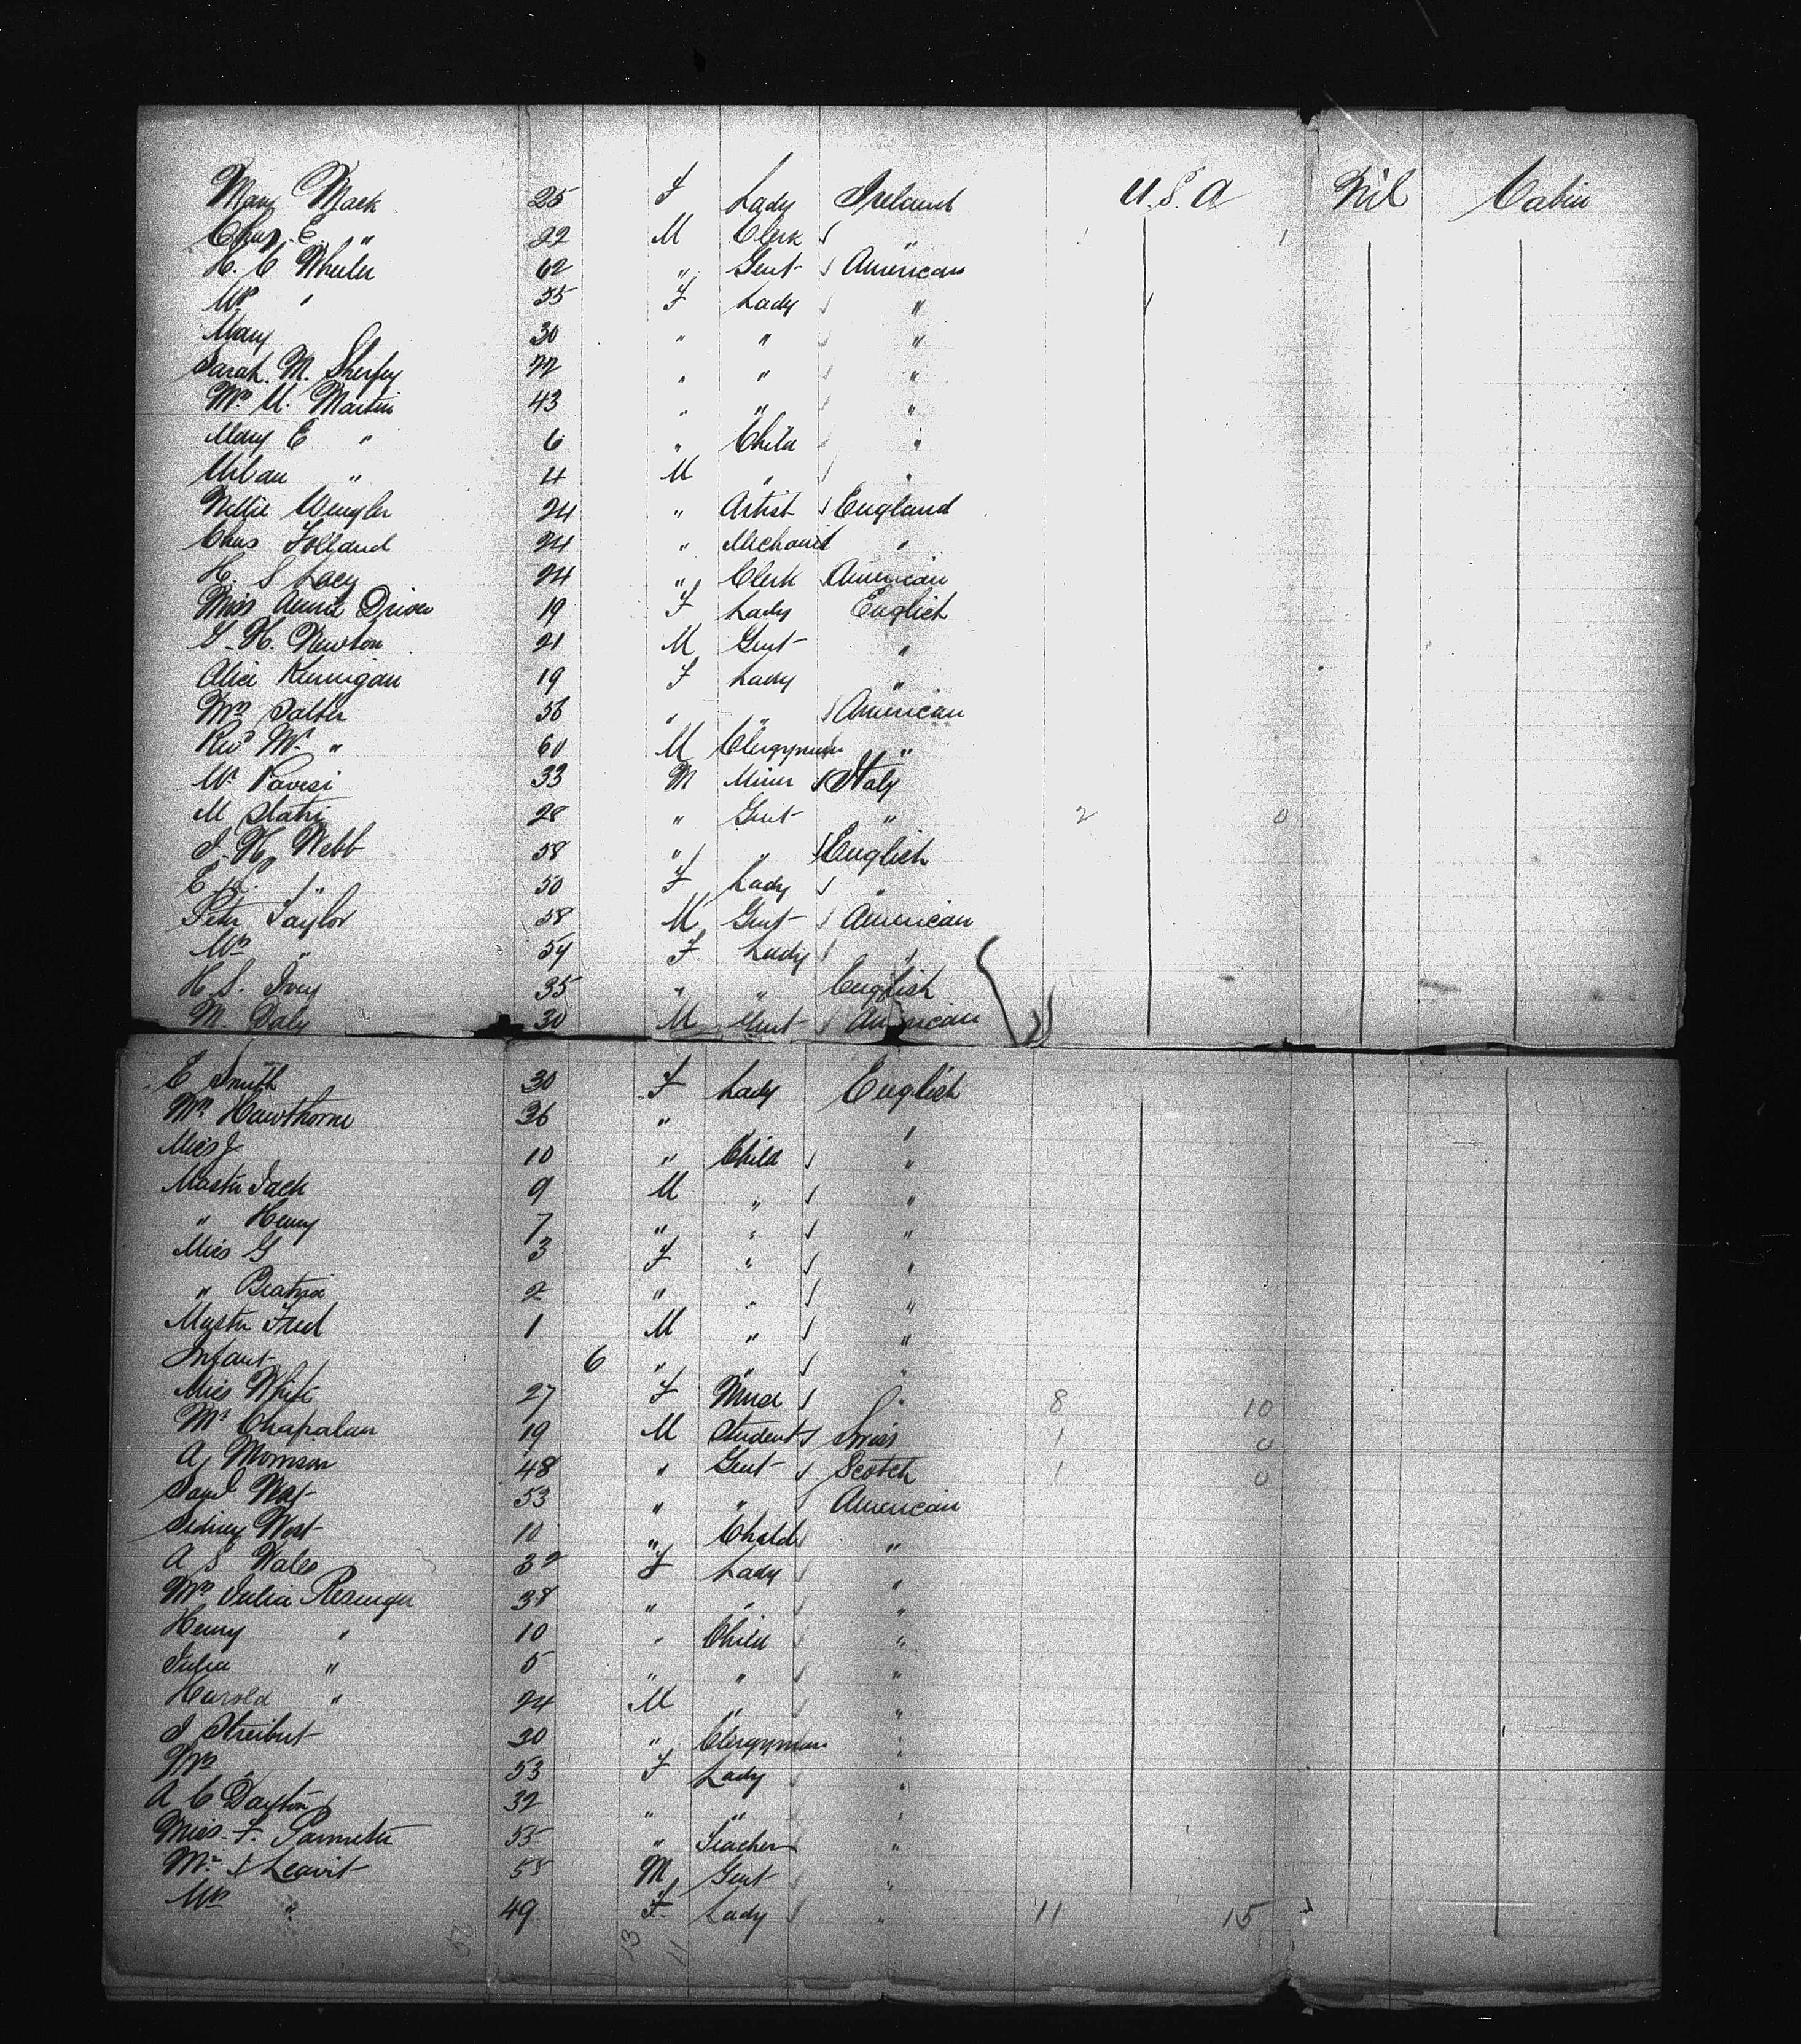 Mary Mack 25 F Lady Ireland U.S.A Nil Cabin
Chas. E. " 22 M Clerk "
H. C Wheeler 62 " Gent American
Mrs " 55 F Lady "
Mary 30 " " "
Sarah. M. Sherfey 22 " " "
Mrs U. Martin 43 " " "
Mary E " 6 " Child "
Urban " 4 M " "
Nellie Wengler 24 " Artist England
Chas Folland 24 " Mechanic "
H. S Lacy 24 " Clerk American
Miss Annie Driver 19 F Lady English
G. H. Newton 21 M Gent "
Alice Kernigan 19 F Lady "
Mrs Salter 56 " " American
Revd Mr. " 60 M Clergyman "
Mr Pavesi 33 M Miner Italy
M Slatri 28 " Gent " 2 0
J. H. Webb 58 " " English
E. " 50 F Lady "
Peter Taylor 58 M Gent American
Mrs " 54 F Lady "
H. S. Ivey 35 " " English
M Daly 30 M Gent American
E Smith 30 F Lady English
Mrs Hawthorne 36 " "
Miss J 10 " Child "
Master Jack 9 M " "
" Henry 7 " " "
Miss G 3 F " "
" Beatrix 2 " " "
Master Fred 1 M " "
Infant 6 " " "
Miss White 27 F Nurse " 8 10
Mr Chapalan 19 M Student Swiss 1 0
A. Morrison 48 " Gent Scotch 1 0
Saml West 53 " " American
Sidney West 10 " Child "
A S Wales 32 F Lady "
Mrs Julia Resinger 38 " " "
Henry " 10 " Child "
Julia " 5 " " "
Harold " 24 M " "
J Streibert 30 " Clergyman "
Mrs 53 F Lady "
A C Dayton 32 " " "
Miss. F. Parmeter 55 " Teacher "
Mr. Leavit 55 M Gent "
Mrs " 49 F Lady " 11 15
50 13 11